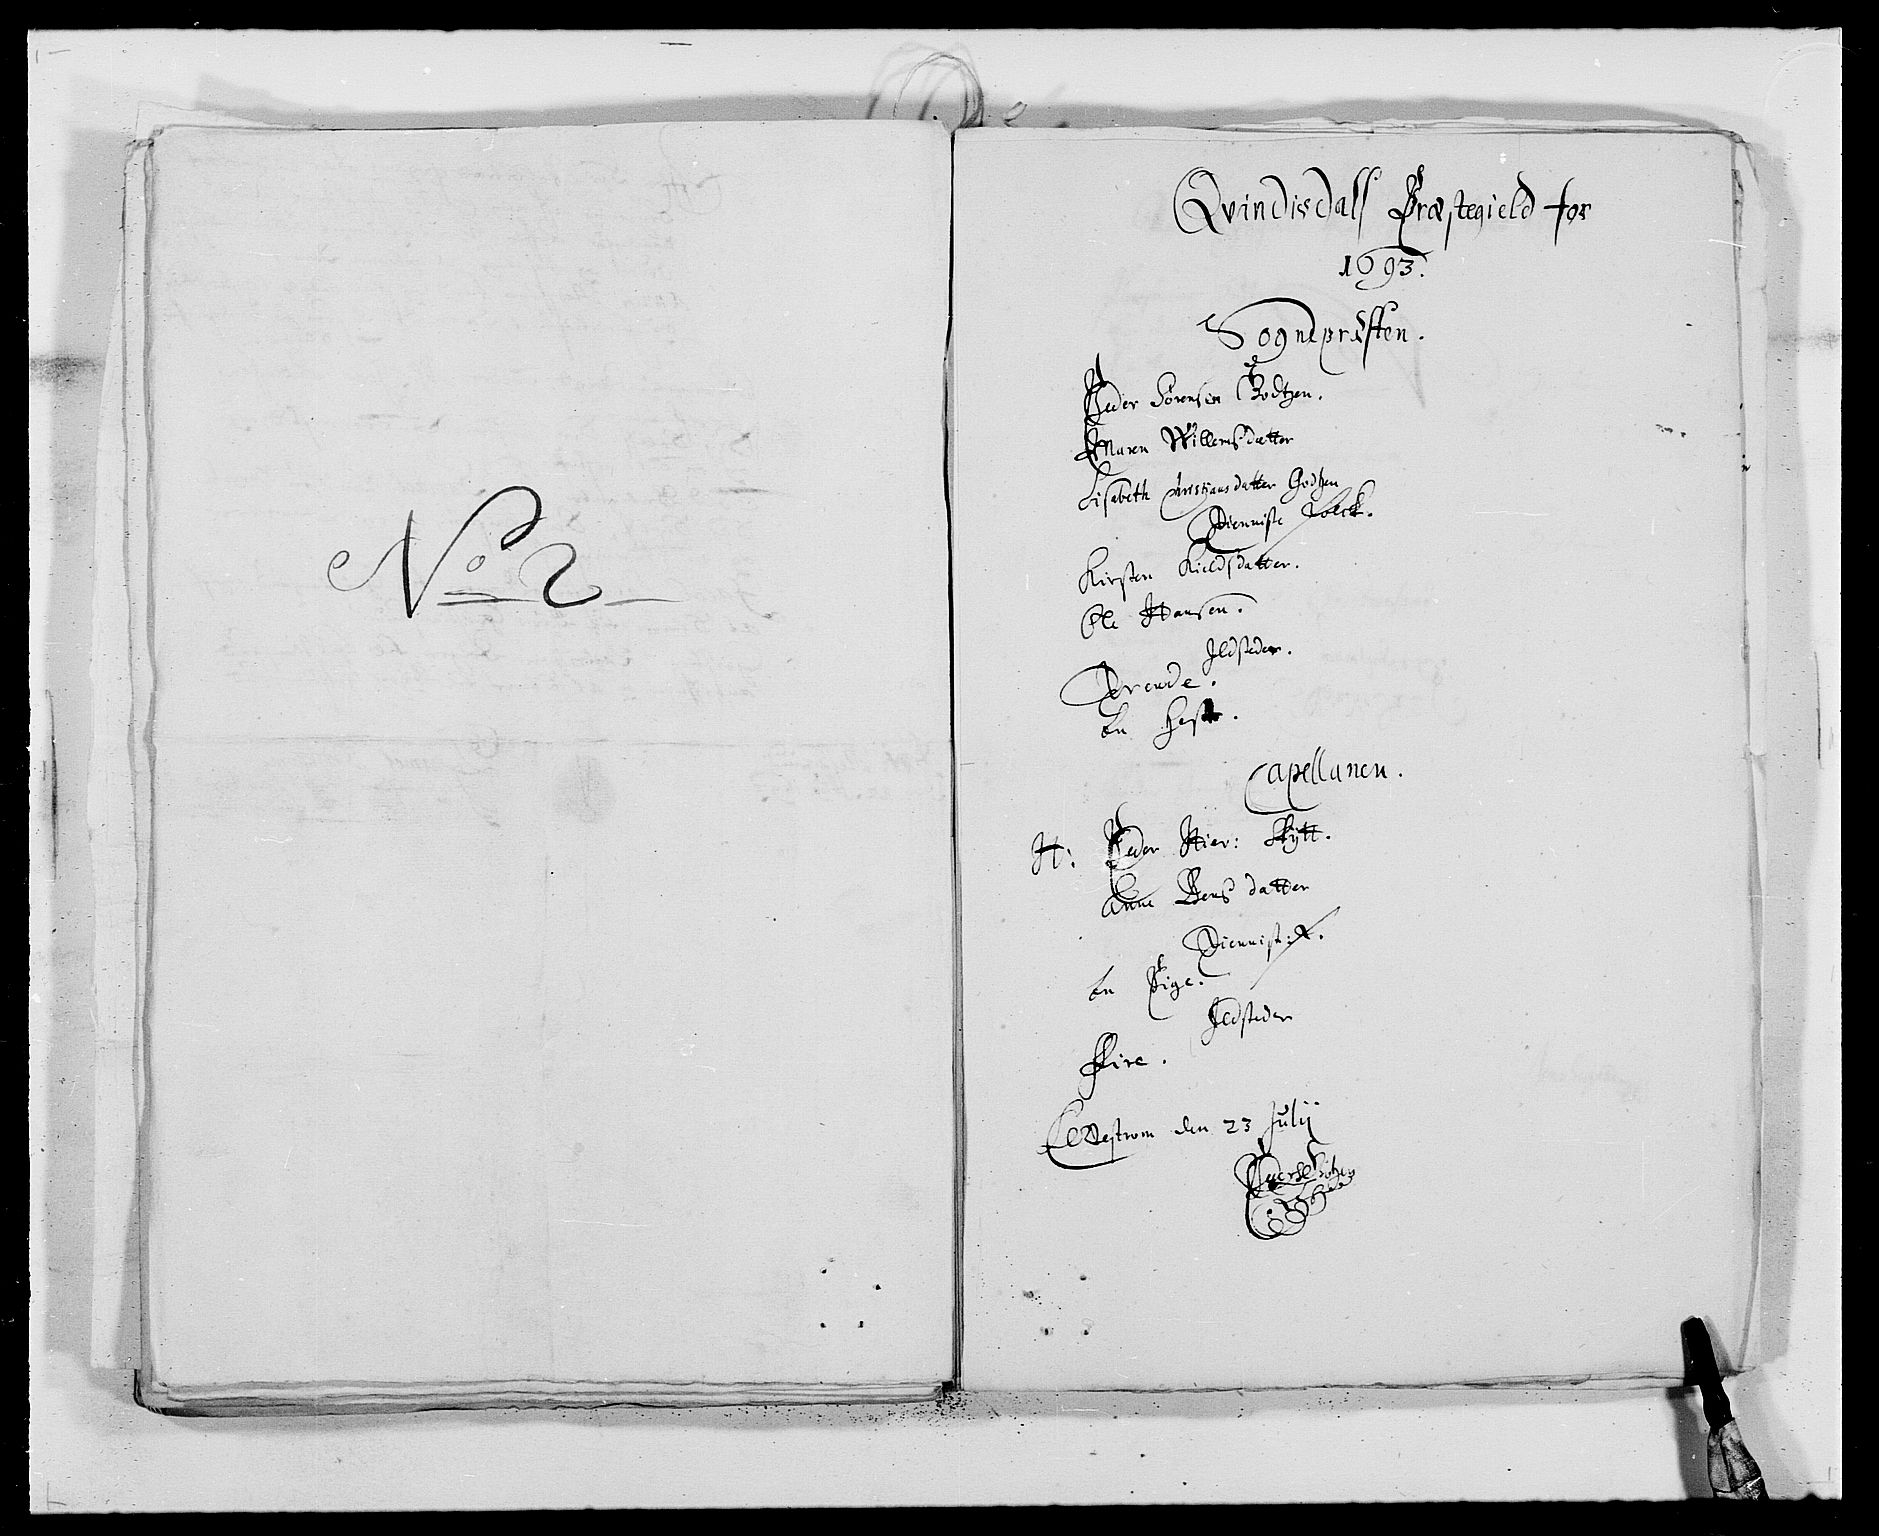 No 2
Qvindisdalss Præstegield for
1693.
Sognepræsten.
Peder Sörensen Godtzen.
Maren Willemsdatter
Lisabeth Christiansdatter Godtzen
Tienniste Folck.
Kirsten Kieldsdatter.
Ole Hansen.
Jldsteder.
En Hest.
Capellanen.
H: Peder Hier: Skytt.
Anne Bens datter
Tienniste F.
En Pige.
Jldsteder
Fire.
den 23 Julij